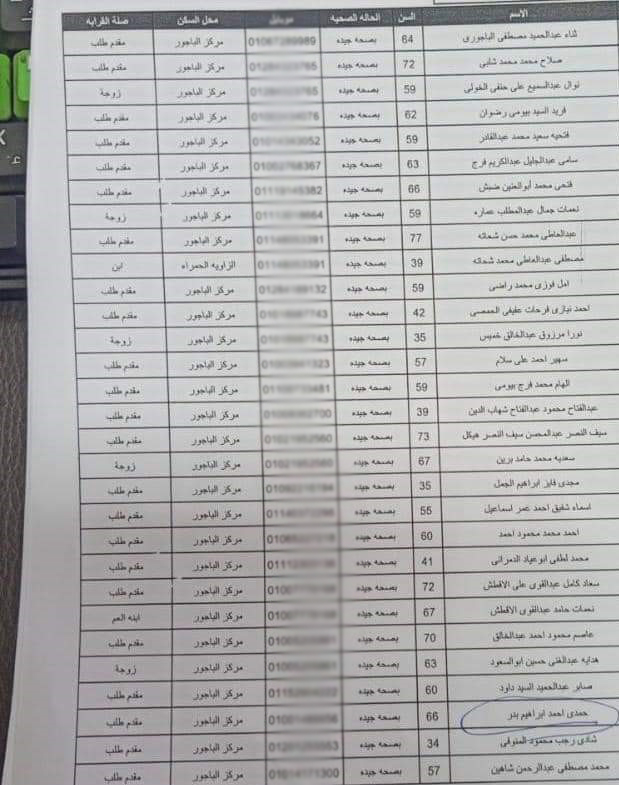 الاسم السن الحاله الصحيه موبايل محل السكن صلة القرابه
ثناء عبدالحميد مصطفى الباجورى 64 بصحه جيده مركز الباجور مقدم طلب
صلاح محمد محمد شلبى 72 بصحه جيده مركز الباجور مقدم طلب
نوال عبدالسميع على حنفى الخولى 59 بصحه جيده مركز الباجور زوجة
فريد السيد بيومى رضوان 62 بصحه جيده مركز الباجور مقدم طلب
فتحيه سعيد محمد عبدالقادر 59 بصحه جيده مركز الباجور مقدم طلب
سامى عبدالجليل عبدالكريم فرج 63 بصحه جيده مركز الباجور مقدم طلب
فتحى محمد أبوالعنين ضبش 66 بصحه جيده مركز الباجور مقدم طلب
نعمات جمال عبدالمطلب عماره 59 بصحه جيده مركز الباجور زوجة
عبدالعاطى محمد حسن شحاته 77 بصحه جيده مركز الباجور مقدم طلب
مصطفى عبدالعاطى محمد شحاته 39 بصحه جيده الزاويه الحمراء ابن
امل فوزى محمد راضى 59 بصحه جيده مركز الباجور مقدم طلب
احمد نيازى فرحات عفيفى الحمصى 42 بصحه جيده مركز الباجور مقدم طلب
نورا مرزوق عبدالخالق خميس 35 بصحه جيده مركز الباجور زوجة
سهير احمد على سلام 57 بصحه جيده مركز الباجور مقدم طلب
الهام محمد فرج بيومى 59 بصحه جيده مركز الباجور مقدم طلب
عبدالفتاح محمود عبدالفتاح شهاب الدين 39 بصحه جيده مركز الباجور مقدم طلب
سيف النصر عبدالمحسن سيف النصر هيكل 73 بصحه جيده مركز الباجور مقدم طلب
سعديه محمد حامد برين 67 بصحه جيده مركز الباجور زوجة
مجدى فايز ابراهيم الجمل 35 بصحه جيده مركز الباجور مقدم طلب
اسماء شفيق احمد عمر اسماعيل 55 بصحه جيده مركز الباجور مقدم طلب
احمد محمد محمود احمد 60 بصحه جيده مركز الباجور مقدم طلب
محمد لطفى ابوعياد النمرانى 41 بصحه جيده مركز الباجور مقدم طلب
سعاد كامل عبدالقوى على الاقطش 72 بصحه جيده مركز الباجور مقدم طلب
نعمات حامد عبدالقوى الاقطش 67 بصحه جيده مركز الباجور ابنه العم
عاصم محمود احمد عبدالخالق 70 بصحه جيده مركز الباجور مقدم طلب
هدايه عبدالغنى حسين ابوالسعود 63 بصحه جيده مركز الباجور زوجة
صابر عبدالحميد السيد داود 60 بصحه جيده مركز الباجور مقدم طلب
حمدى احمد ابراهيم بدر 66 بصحه جيده مركز الباجور مقدم طلب
شادى رجب محمود المنوفى 34 بصحه جيده مركز الباجور مقدم طلب
محمد مصطفى عبدالرحمن شاهين 57 بصحه جيده مركز الباجور مقدم طلب